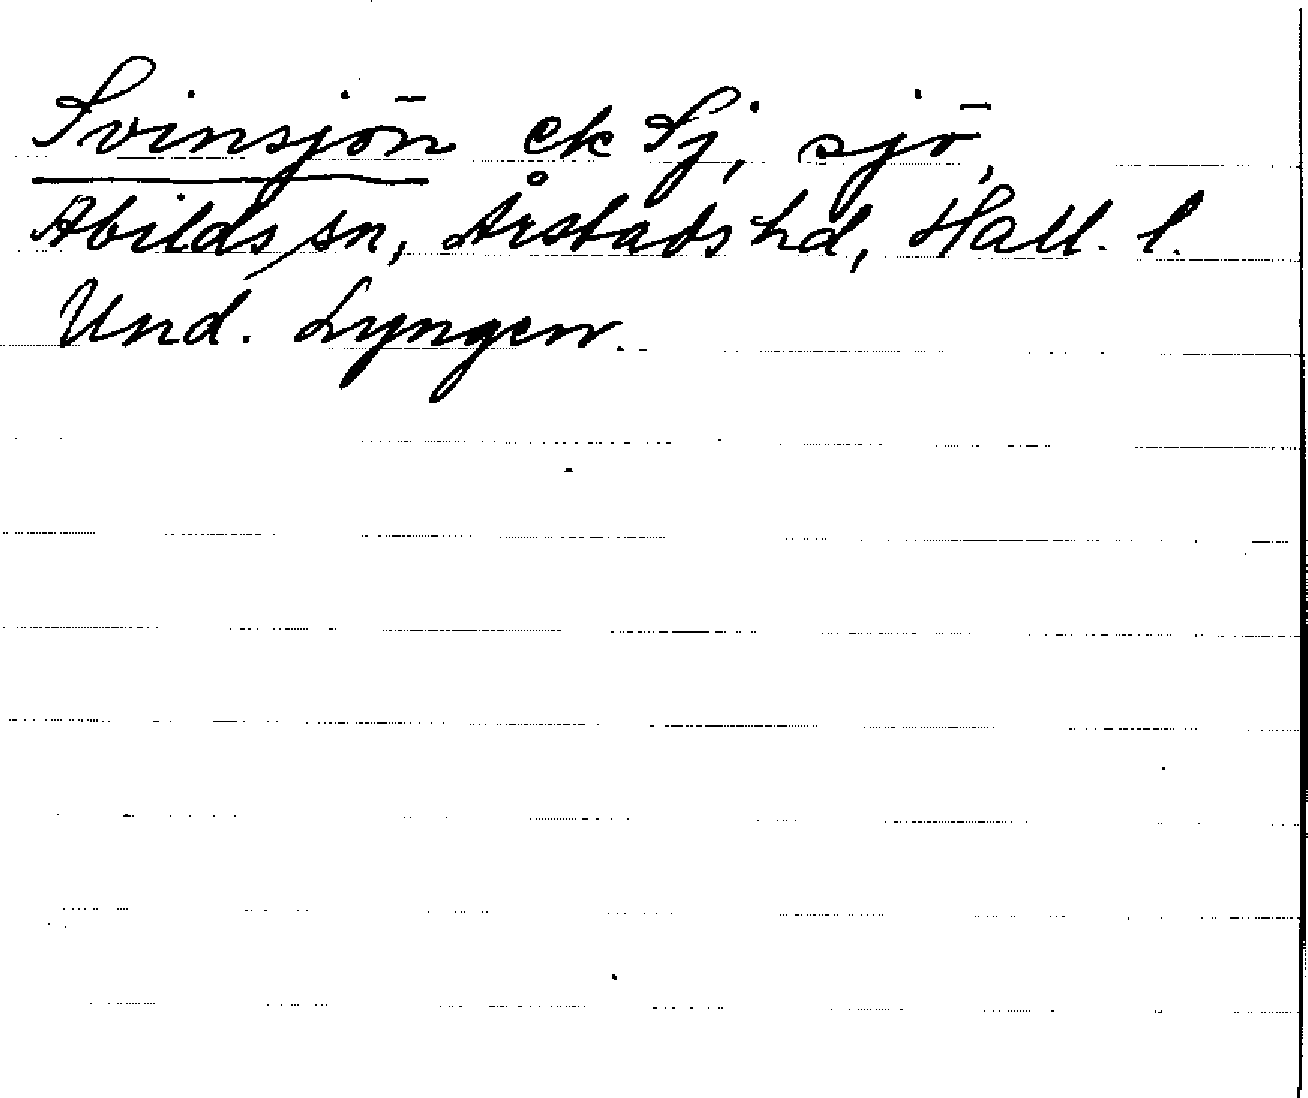 Svinsjön ek Sj, sjö,
Abilds sn, Årstads hd, Hall. l.
Und. Lyngen.